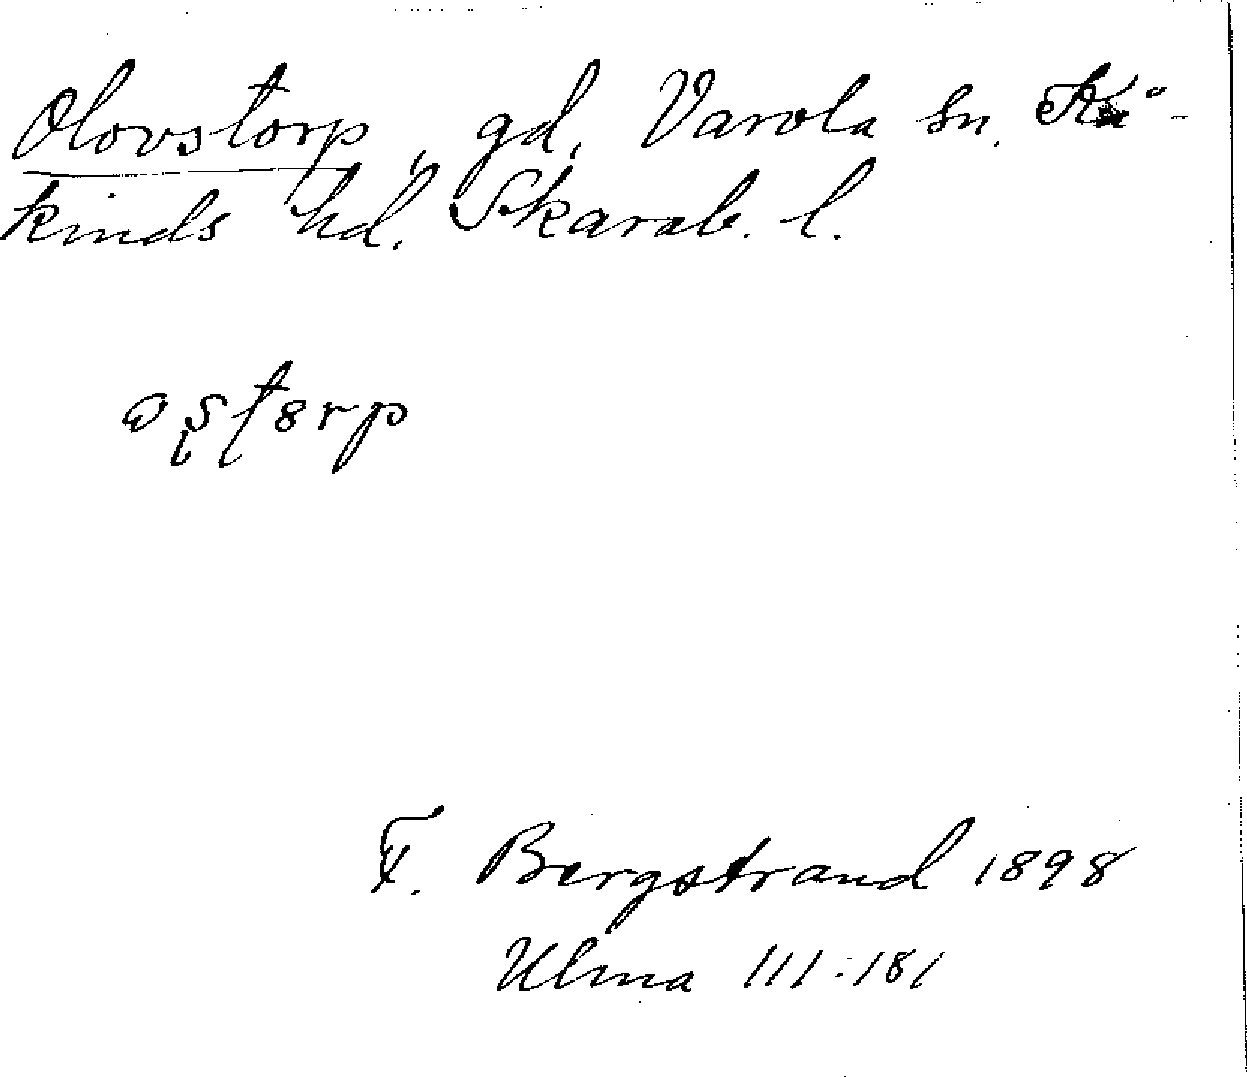 Olovstorp, gd, Varola sn. Kå-
kinds hd. Skarab. l.
F. Bergstrand 1898
Ulma 111:181